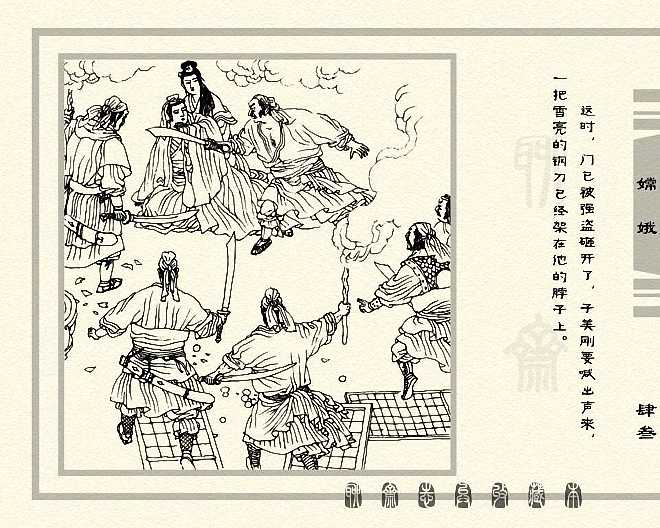 这时，门已被强盗砸开了，子美刚要喊出声来，
一把雪亮的钢刀已经架在他的脖子上。
嫦娥
肆叁